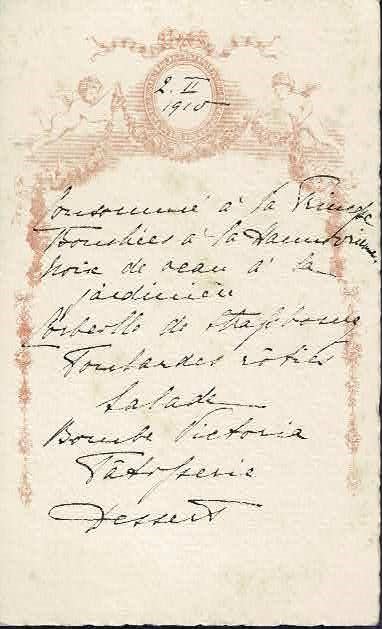 2. II
1910
Consommé à la Princesse
Bouchées à la Hannovrienne
Noix de veau à la
jardinièn
de Strassbourg
Poulardes rôties
Salade
Bombe Victoria
Pâtisserie
Dessert